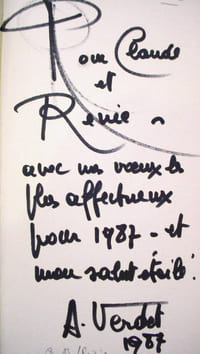 Pour Claude
et
Renée
avec mes voeux les
plus affectueux
pour 1987 - et
mon salut étoilé !
A. Verdet
1987